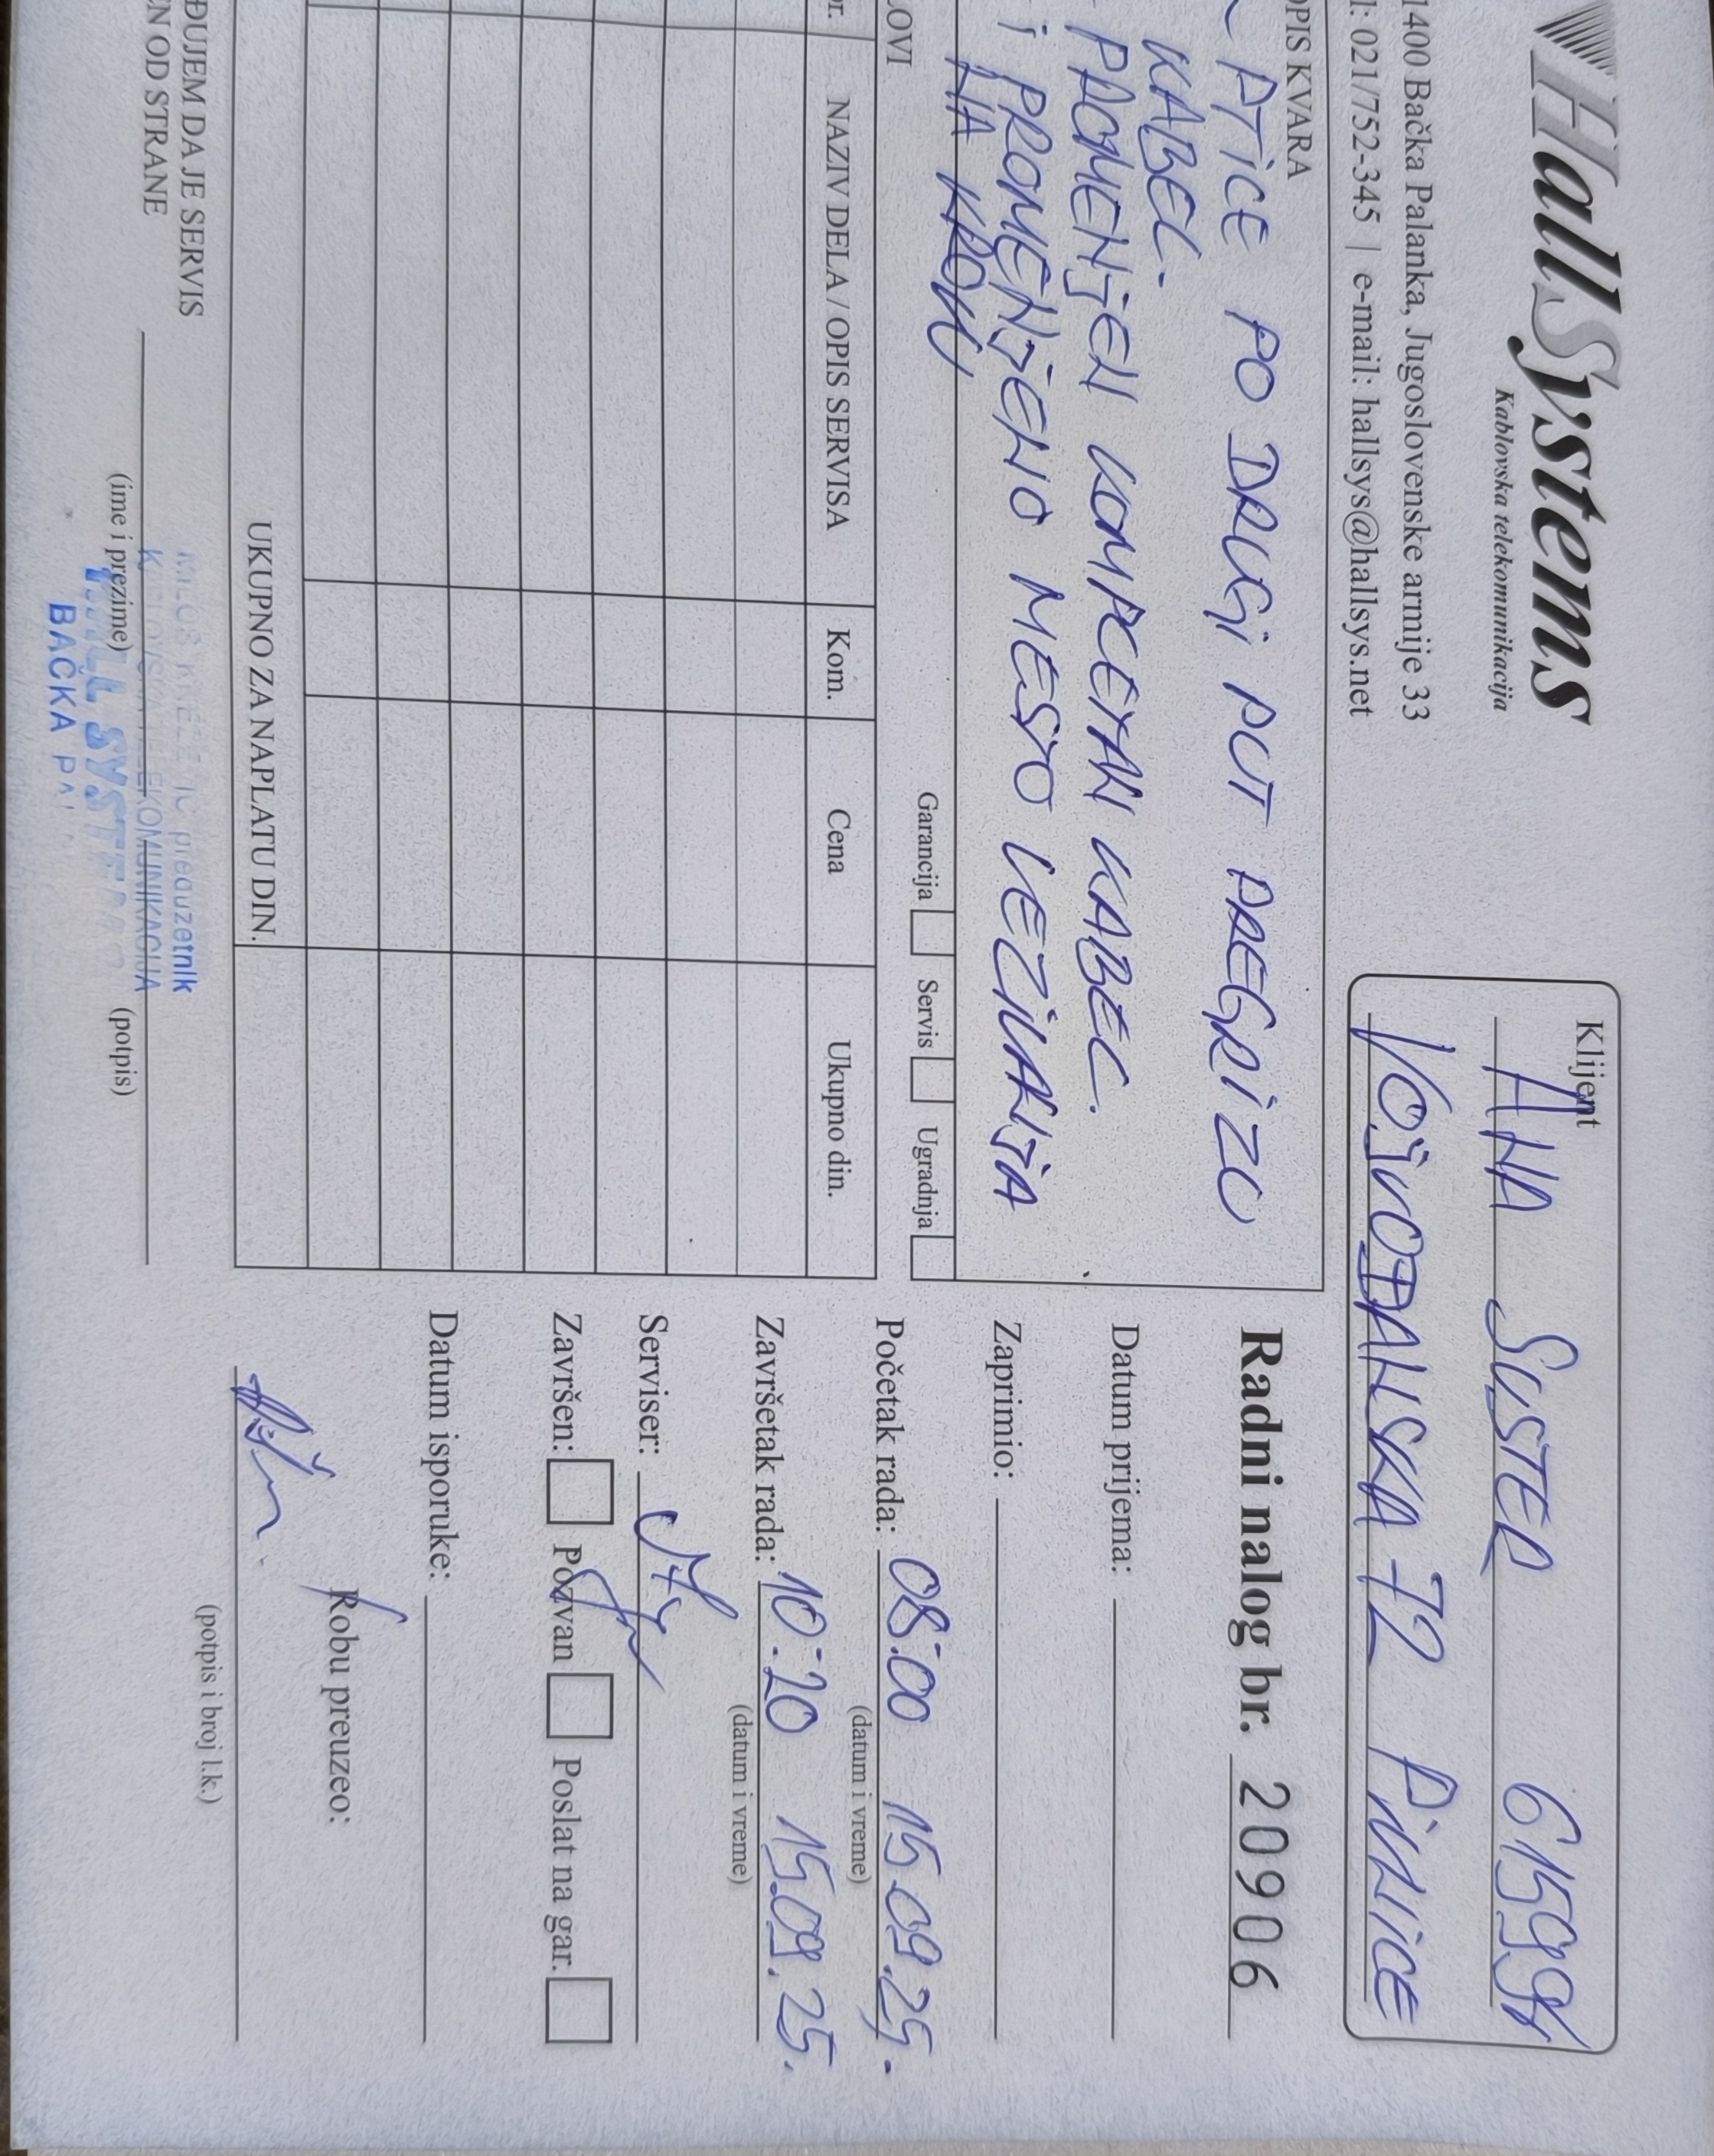 HallSystems
Kablovska telekomunikacija
1400 Bačka Palanka, Jugoslovenske armije 33
l: 021/752-345 | e-mail: hallsys@hallsys.net
Klijent
ANA SUSTER 61599
VOJVOĐANSKA 72 PIVNICE
OPIS KVARA
- PTICE PO DRUGI PUT PREGRIZU
KABEL.
- PROMENJEN KOMPLETAN KABEL.
i PROMENJENO MESTO VEZIVANJA
NA KROVU
Radni nalog br. 20906
Datum prijema:
Zaprimio:
Početak rada: 08:00 15.09.25.
(datum i vreme)
Završetak rada: 10:20 15.09.25.
(datum i vreme)
Serviser:
Završen: Pozvan Poslat na gar.
Datum isporuke:
Robu preuzeo:
(potpis i broj l.k.)
LOVI Garancija Servis Ugradnja
br. NAZIV DELA / OPIS SERVISA Kom. Cena Ukupno din.
UKUPNO ZA NAPLATU DIN.
ĐUJEM DA JE SERVIS
EN OD STRANE
(ime i prezime) (potpis)
preduzetnik
TELEKOMUNIKACIJA
HALL SYSTEMS
BAČKA PAL